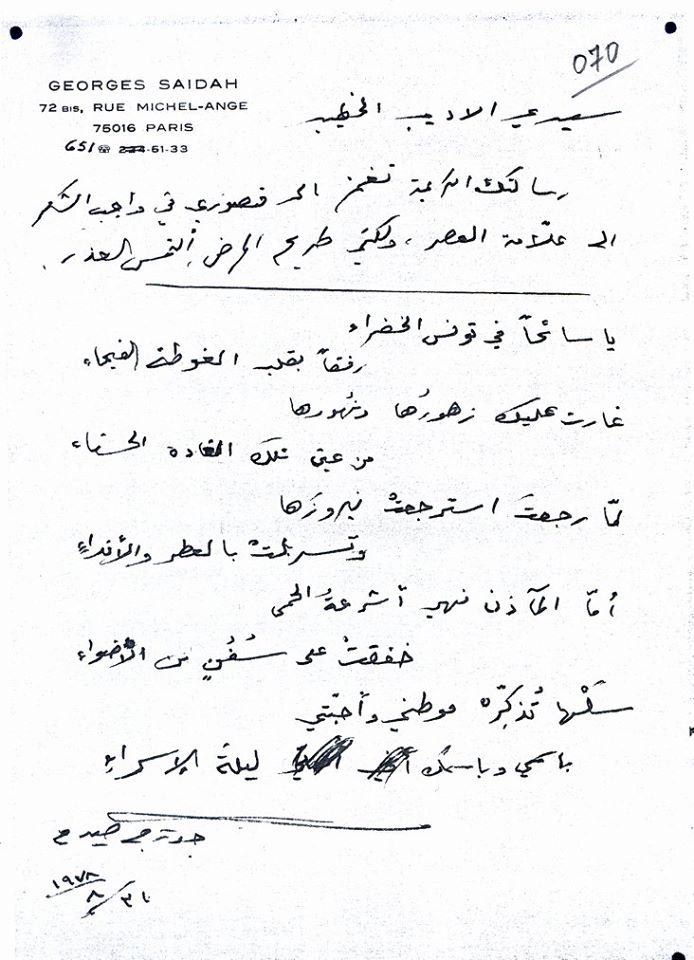 070
GEORGES SAIDAH
72 BIS, RUE MICHEL-ANGE
75016 PARIS
651 ☏ 224-51-33
سيدي الاديب الخطيب
رسالتك الكريمة تغمز الى قصوري في واجب الشكر
الى علّامة العصر، ولكني طريح المرض ألتمس العذر.
يا سائحاً في تونس الخضراء
رفقاً بقلب الغوطة الفيحاء
غارت عليك زهورُها ونهورها
من عين تلك الغادة الحسناء
لمّا رجعتَ استرجعتْ نيروزَها
وتسربلتْ بالعطر والأنداءِ
أمّا المآذن فهي أشرعةُ الحمى
خفقتْ على سُفُنٍ من الأضواء
سَلْها تُذكّرْه موطني وأحبّتي
باسمي وباسمك ليلةَ الإسراءِ
جورج صيدح
٣١/٨/١٩٧٨